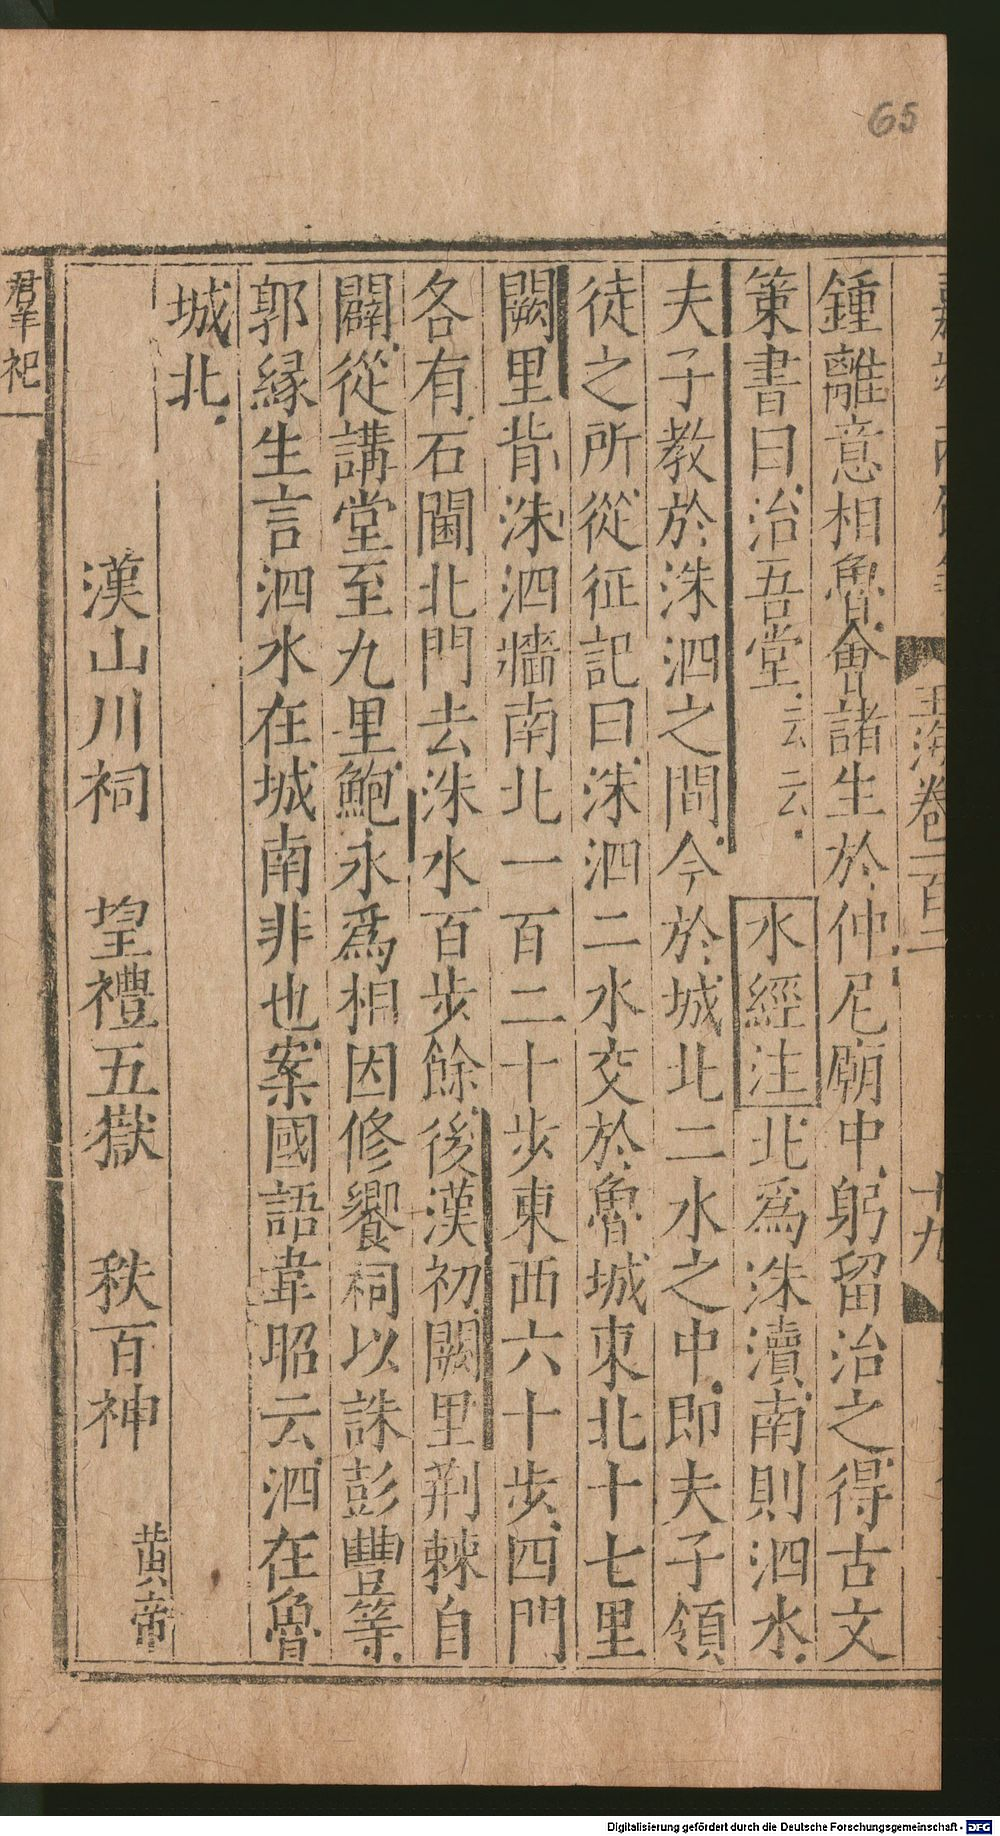 65
玉海卷一百二
十九
鍾離意相魯會諸生於仲尼廟中躬留治之得古文
策書曰治吾堂云云水經注北爲洙瀆南則泗水
夫子教於洙泗之間今於城北二水之中即夫子領
徒之所從征記曰洙泗二水交於魯城東北十七里
闕里背洙泗牆南北一百二十步東西六十步四門
各有石閫北門去洙水百步餘後漢初闕里荆棘自
闢從講堂至九里鮑永爲相因修饗祠以誅彭豐等
郭緣生言泗水在城南非也案國語韋昭云泗在魯
城北
漢山川祠 望禮五嶽 秩百神 黄帝
羣祀
Digitalisierung gefördert durch die Deutsche Forschungsgemeinschaft - DFG